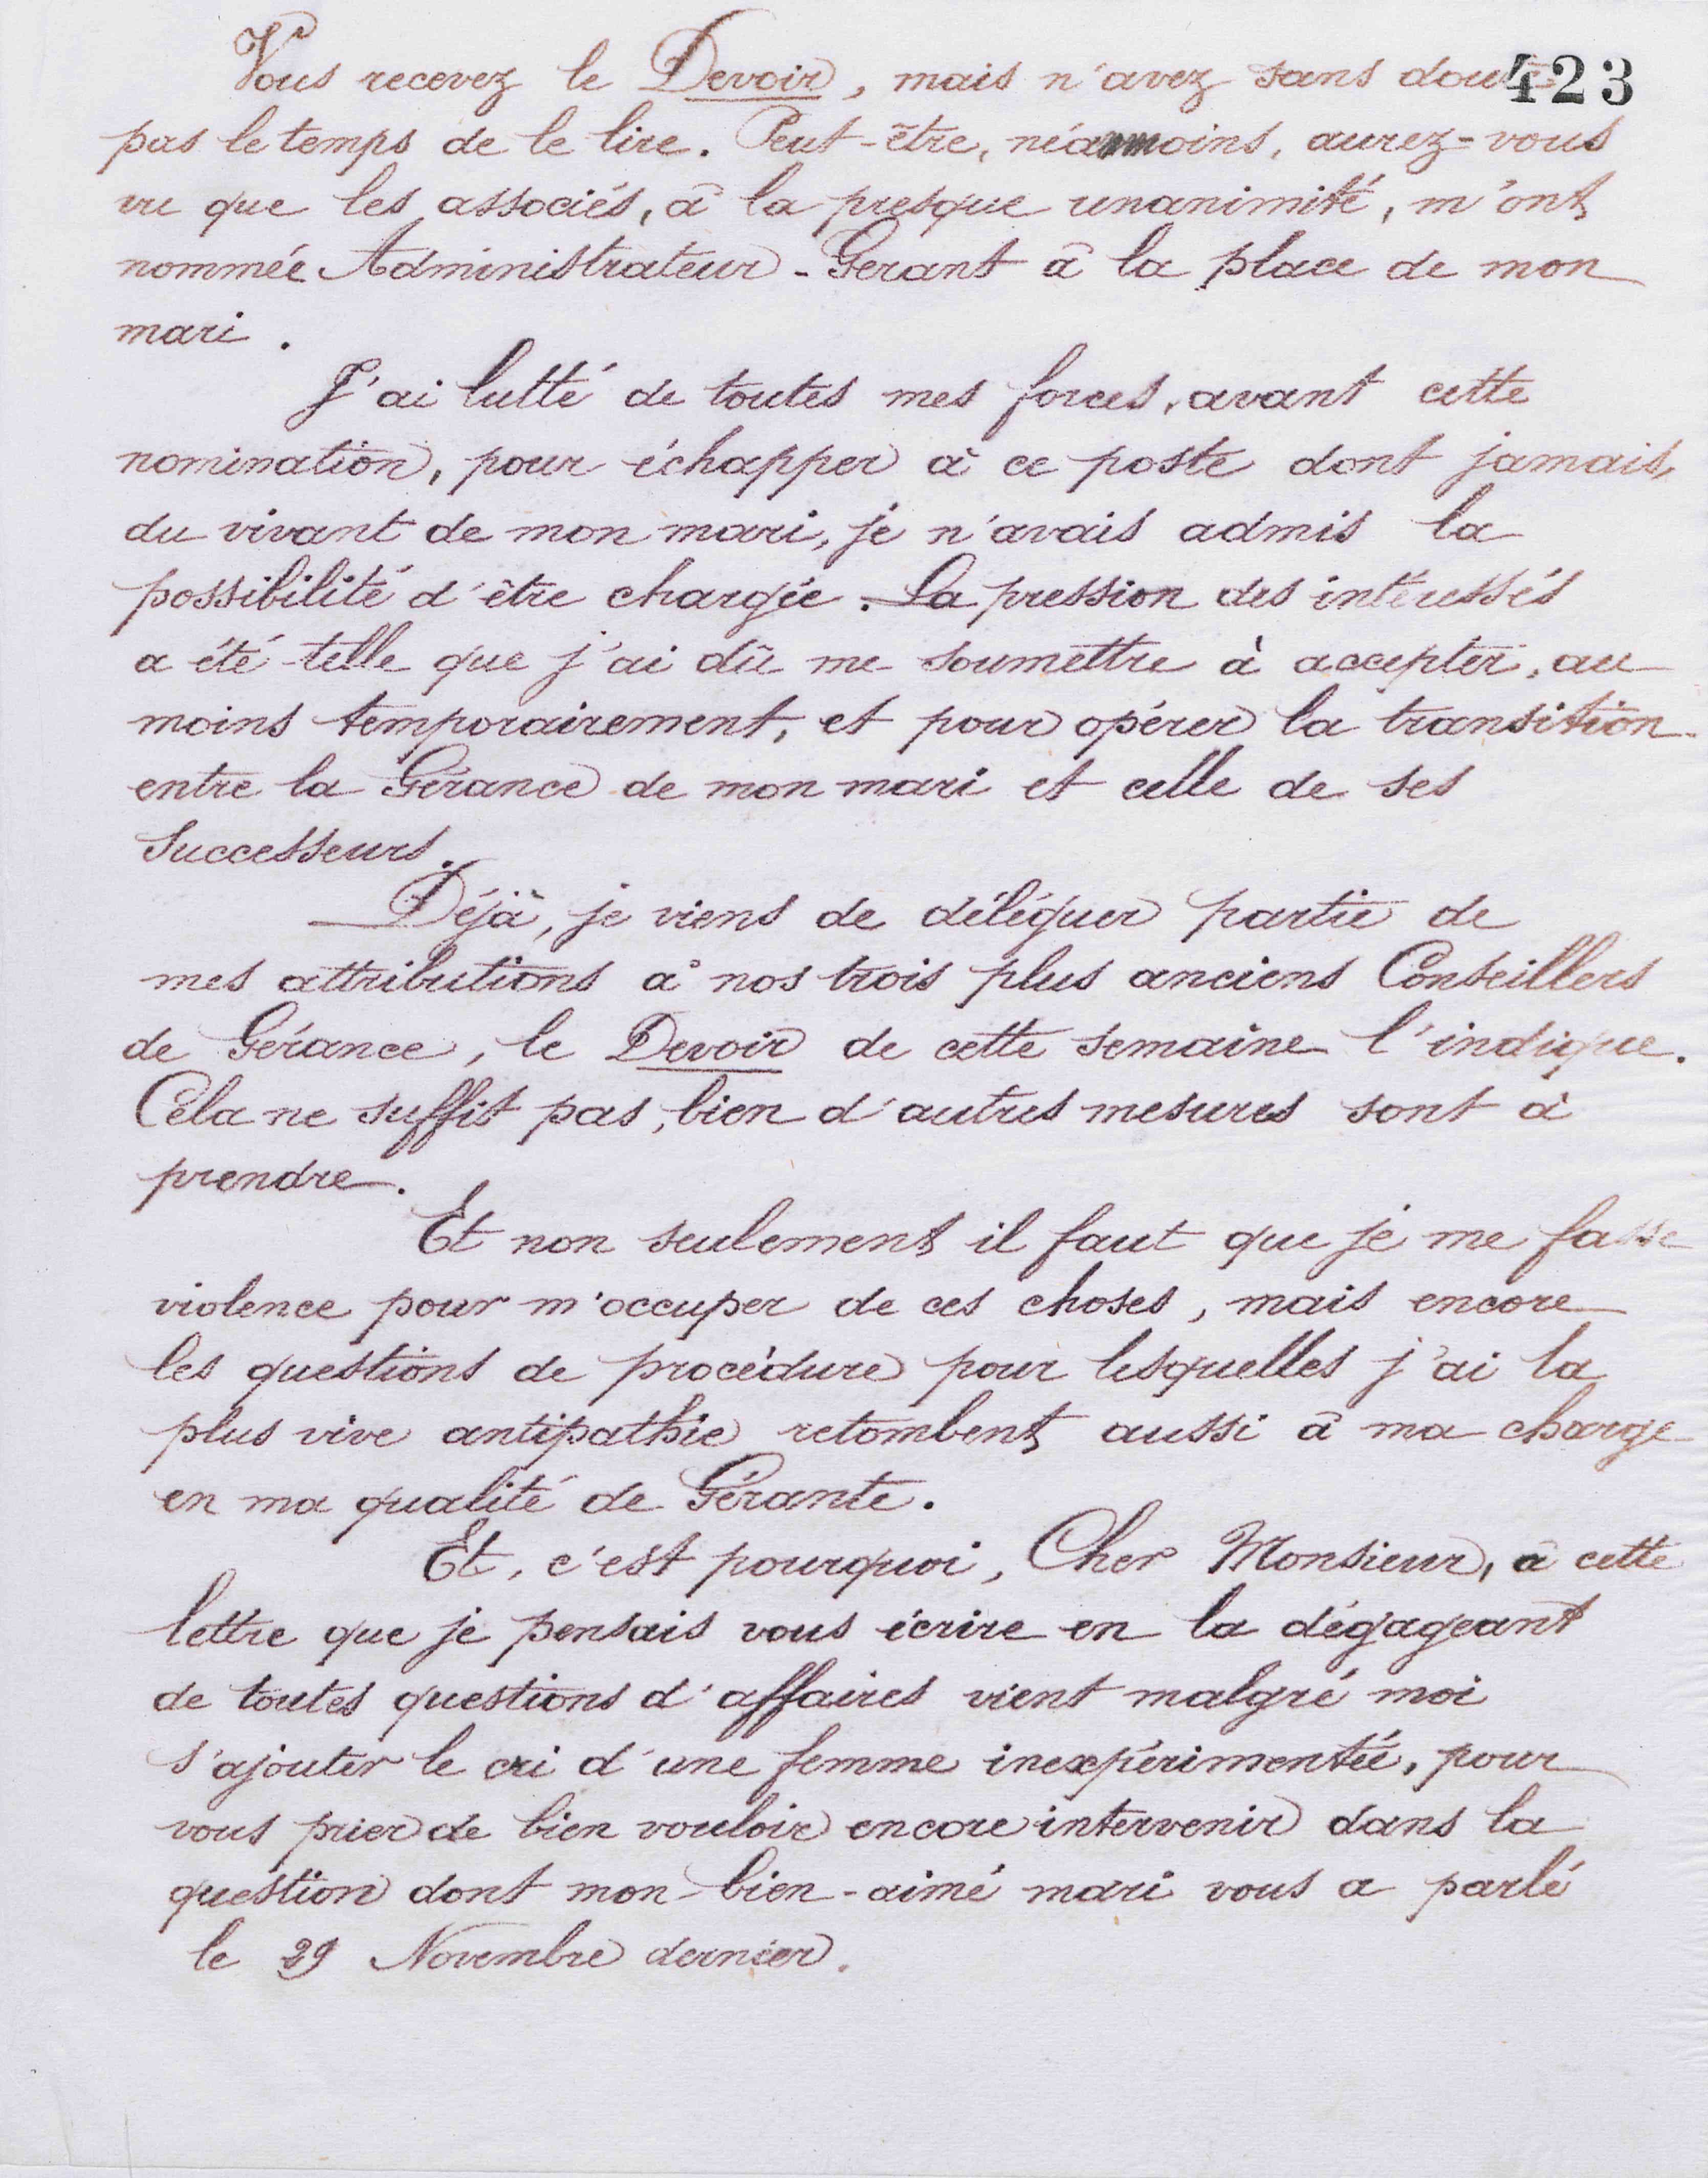 423
Vous recevez le Devoir, mais n'avez sans doute
pas le temps de le lire. Peut-être, néanmoins, aurez-vous
vu que les associés, à la presque unanimité, m'ont
nommée Administrateur-Gérant à la place de mon
mari.
J'ai lutté de toutes mes forces, avant cette
nomination, pour échapper à ce poste dont jamais,
du vivant de mon mari, je n'avais admis la
possibilité d'être chargée. La pression des intéressés
a été telle que j'ai dû me soumettre à accepter, au
moins temporairement, et pour opérer la transition
entre la Gérance de mon mari et celle de ses
successeurs.
Déjà, je viens de déléguer partie de
mes attributions à nos trois plus anciens Conseillers
de Gérance, le Devoir de cette semaine l'indique.
Cela ne suffit pas, bien d'autres mesures sont à
prendre.
Et non seulement il faut que je me fasse
violence pour m'occuper de ces choses, mais encore
les questions de procédure pour lesquelles j'ai la
plus vive antipathie retombent aussi à ma charge
en ma qualité de Gérante.
Et, c'est pourquoi, Cher Monsieur, à cette
lettre que je pensais vous écrire en la dégageant
de toutes questions d'affaires vient malgré moi
s'ajouter le cri d'une femme inexpérimentée, pour
vous prier de bien vouloir encore intervenir dans la
question dont mon bien-aimé mari vous a parlé
le 29 Novembre dernier.